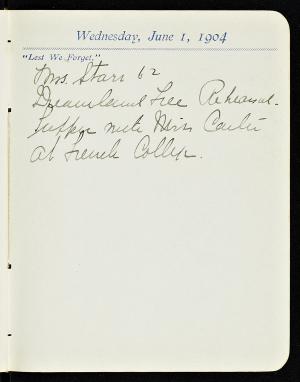 Wednesday, June 1, 1904
"Lest We Forget."
Mrs. Starr 62
Dreamland Free Rehearsal.
Supper with Miss Carter
at French College.